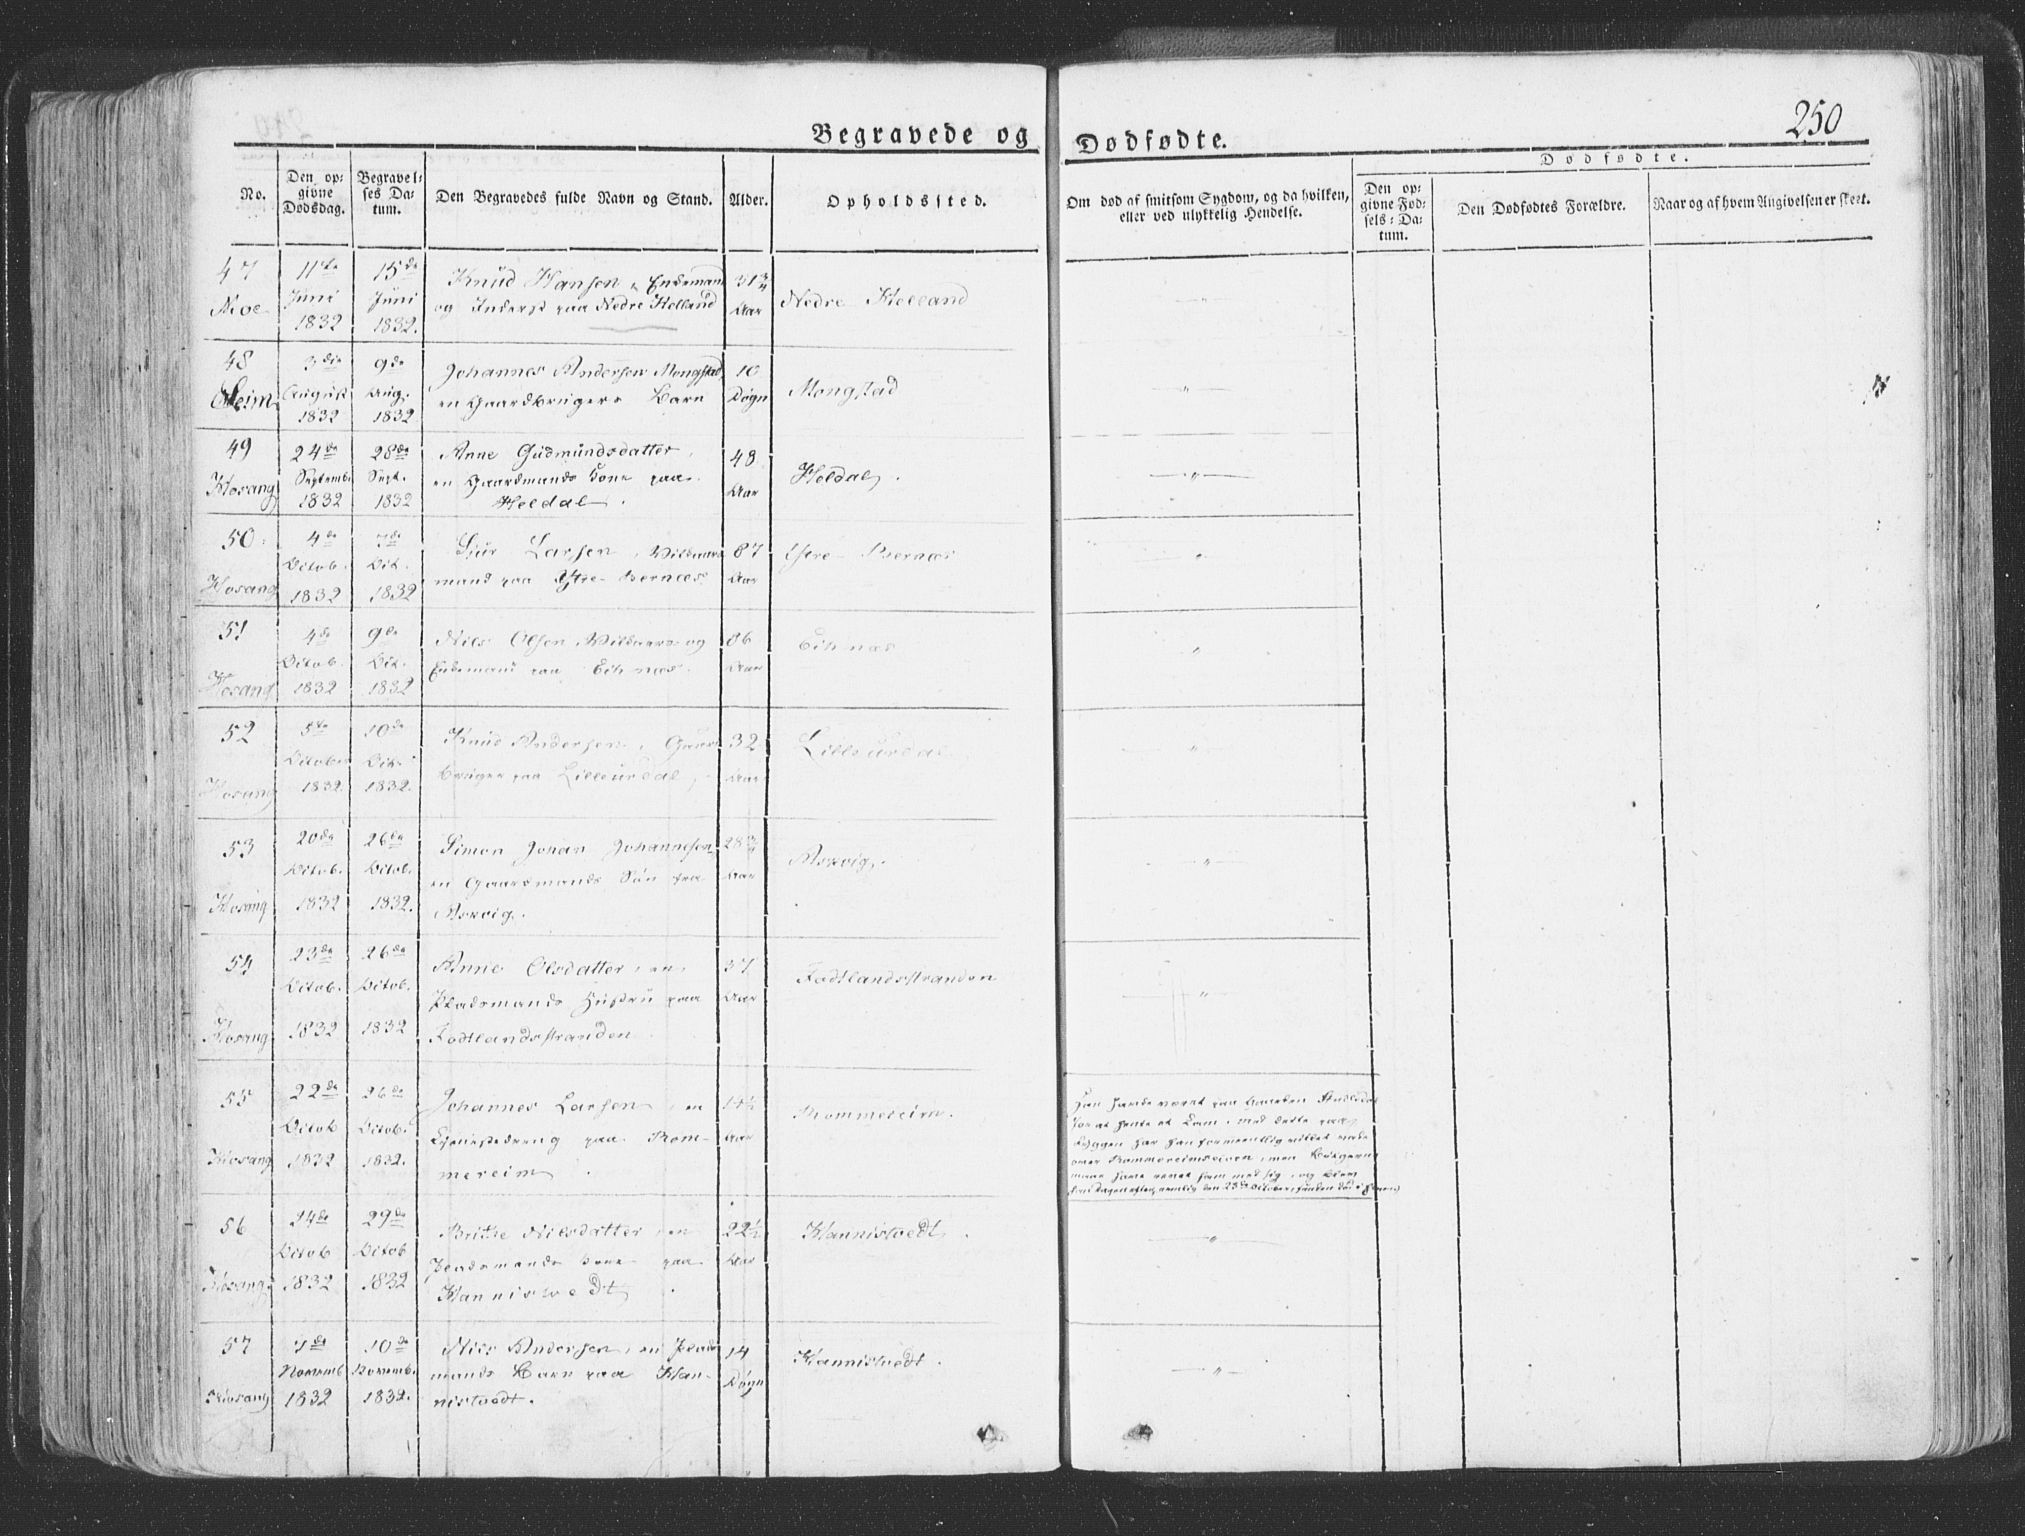 250
Begravede og Dødfødte.
No.
Den op=
givne
Dødsdag.
Begravel=
ses Da=
tum.
Den Begravedes fulde Navn og Stand.
Alder.
Opholdssted.
Om død af smitsom Sygdom, og da hvilken,
eller ved ulykkelig Hendelse.
Dødfødte.
Den op=
givne Fød=
sels=Da=
tum.
Den Dødfødtes Forældre.
Naar og af hvem Angivelsen er skeet.
47
Moe
11te
Juni
1832
15de
Juni
1832.
Knud Hansen, Enkemand
og Inderst paa Nedre Helland
51 3/4
Aar
Nedre Helland
"
48
Seim
3die
August
1832
9de
Aug.
1832
Johannes Andersen Mongstad,
en Gaardbrugers Barn
10
Døgn
Mongstad
"
49
Hosang
24de
Septemb.
1832
28de
Sept.
1832
Anne Gudmundsdatter,
en Gaardmands Kone paa
Heldal.
48
Aar
Heldal.
"
50.
Hosang
4de
Octob.
1832
7de
Oct.
1832
Sjur Larsen, Vilkaars
mand paa Ytre-Bernæs
87
Aar
Ytre-Bernæs
"
51
Hosang
4de
Octob.
1832
9de
Oct.
1832
Nils Olsen Vilkaars- og
Enkemand paa Eiknæs.
86
Aar
Eiknæs
"
52
Hosang
5te
October
1832
10de
Oct.
1832.
Knud Andersen, Gaard
bruger paa Lilleurdal,
32
Aar
Lilleurdal
"
53
Hosang
20de
Octob.
1832
26de
Octob.
1832.
Simon Johan Johannesen
en Gaardmands Søn fra
Askvig.
28 3/4
Aar
Askvig.
"
54
Hosang
23de
Octob.
1832
26de
Octob.
1832
Anne Olsdatter, en
Pladsmands Hustru paa
Fodtlandsstranden
37
Aar
Fodtlandsstranden
"
55
Hosang
22de
Octob
1832
26de
Octob.
1832.
Johannes Larsen, en
Tjenestedreng paa Rom-
mereim.
14 1/2
Aar
Rommereim.
Han havde været paa Gaarden
for at hente et Lam, med dette paa
Ryggen har han formeentlig villet vade
over Rommereimselven, men
maae have revet ham med sig, og blev
Dagen efter, nemlig den 23de October, funden død i
56
Hosang
24de
Octob
1832
29de
Octob
1832
Britte Nilsdatter, en
Pladsmands Kone paa
Hannistvedt.
22 1/2
Aar
Hannistvedt.
"
57
Hosang
7de
Novemb
1832
10de
Novemb.
1832.
Nils Andersen, en Plads
mands Barn paa Han-
nistvedt.
14
Døgn
Hannistvedt.
"